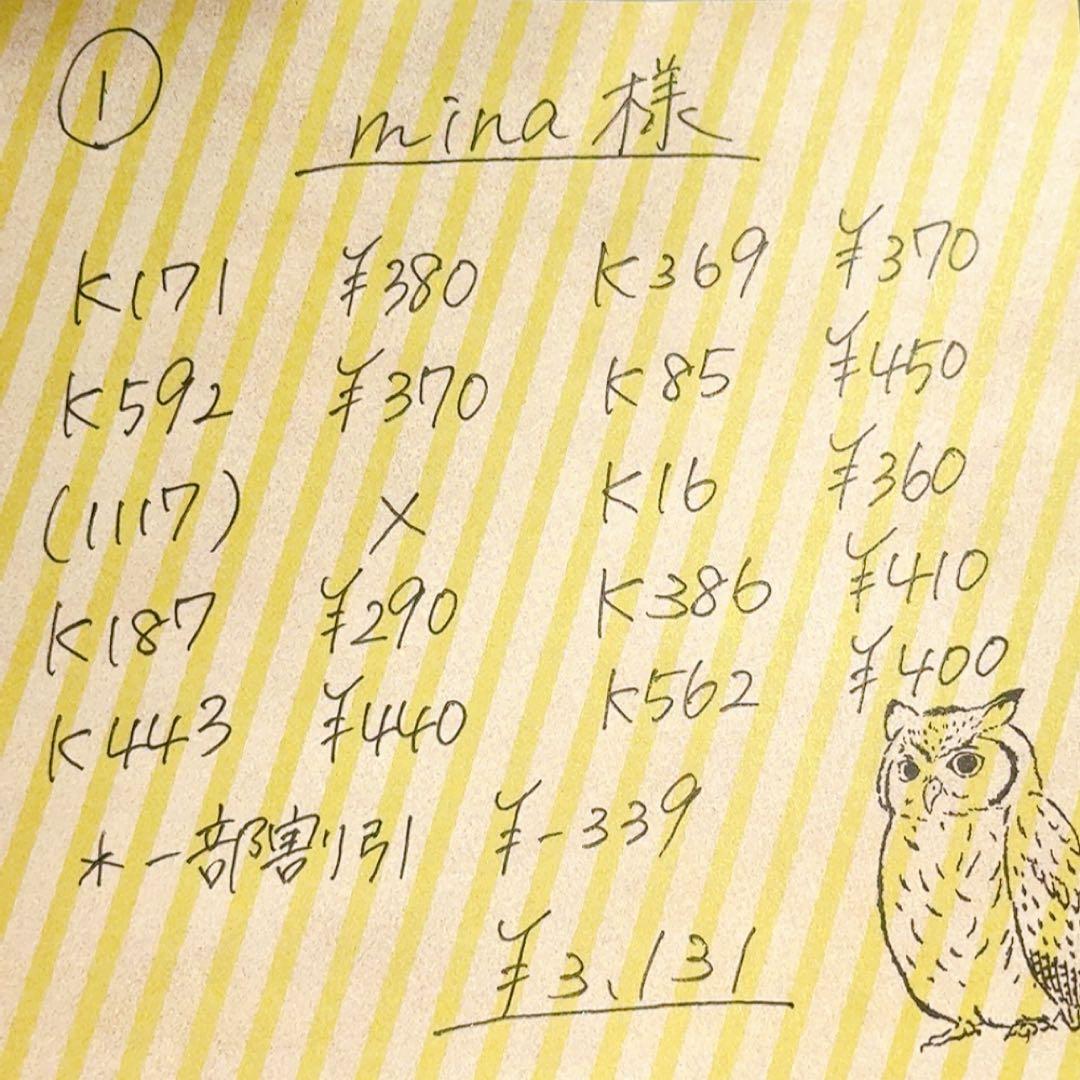 ①
mina 様
K171 ¥380
K592 ¥370
(1117) ×
K187 ¥290
K443 ¥440
K369 ¥370
K85 ¥450
K16 ¥360
K386 ¥410
K562 ¥400
*一部割り引 ¥-339
¥3,131